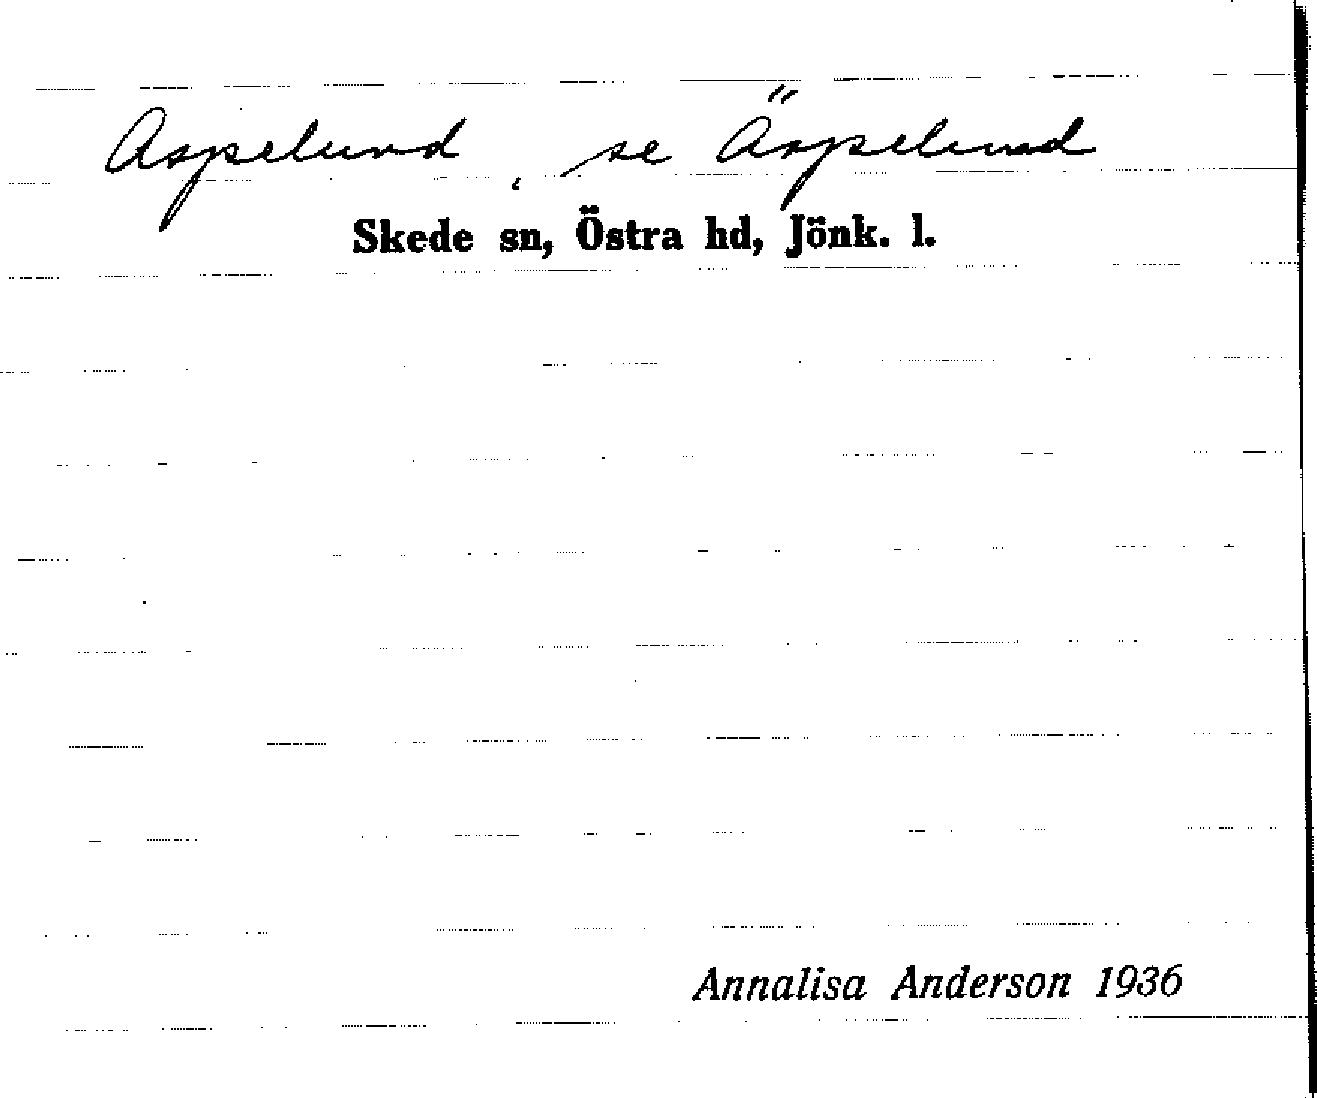 Aspelund, se Äspelund
Skede sn, Östra hd, Jönk. l.
Annalisa Anderson 1936